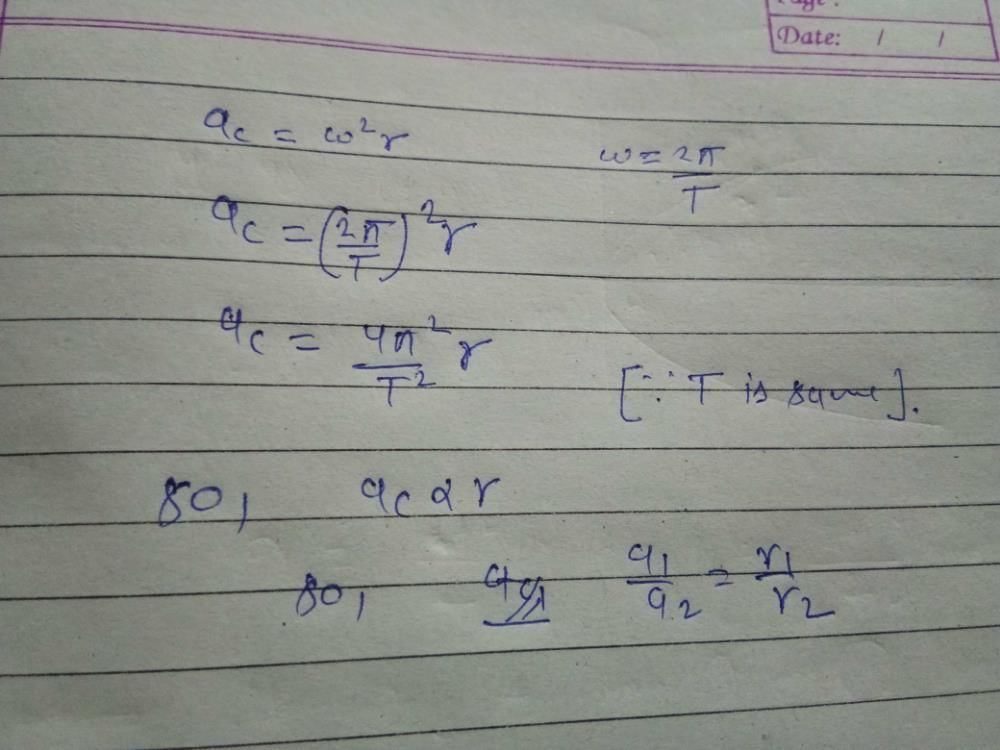 Page:
Date: / /
a_c = ω²r
ω = 2π/T
a_c = (2π/T)² r
a_c = 4π²/T² r
[∵ T is same].
So, a_c ∝ r
So, a₁/a₂ = r₁/r₂